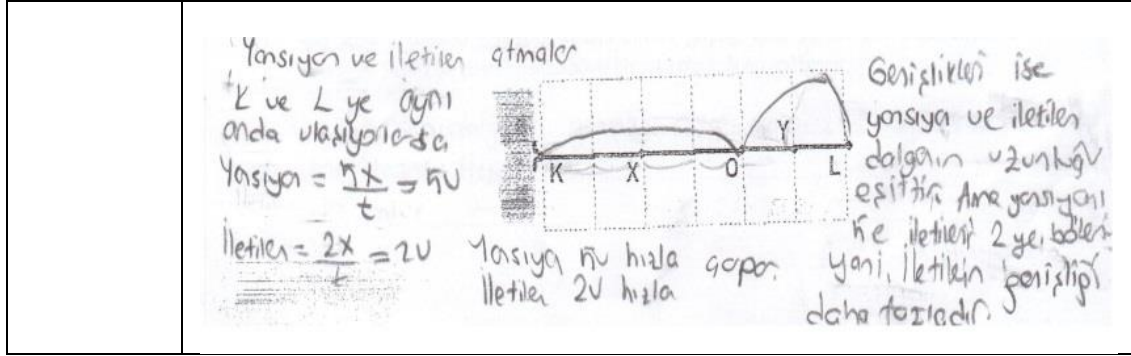 Yansıyan ve iletilen atmalar
K ve L ye aynı
anda ulaşıyorlarsa
Yansıyan = 4x/t = 4U
İletilen = 2x/t = 2U
K X O Y L
Yansıyan 4U hızla
İletilen 2U hızla
Genişlikleri ise
yansıyan ve iletilen
dalganın uzunluğu
eşittir. Ama yansıyanı
4 e iletileni 2 ye böler
yani, iletilenin genişliği
daha fazladır